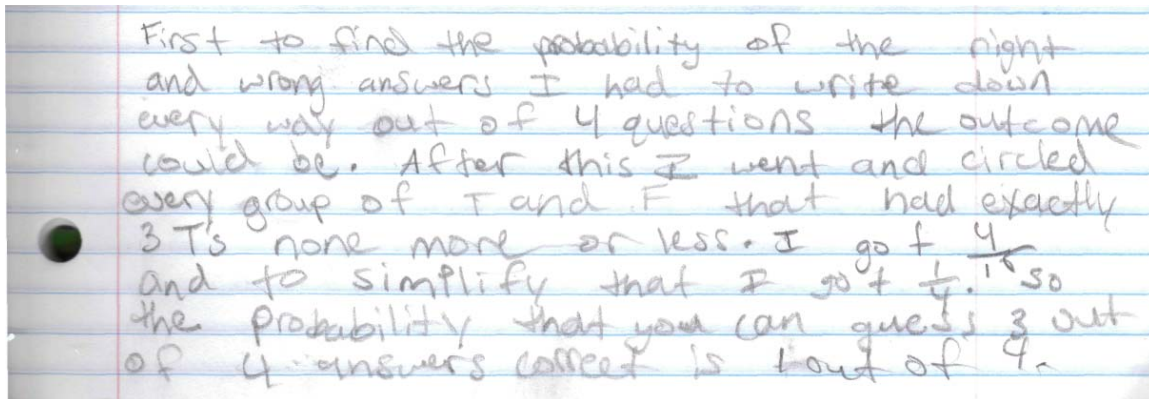 First to find the probability of the right
and wrong answers I had to write down
every way out of 4 questions the outcome
could be. After this I went and circled
every group of T and F that had exactly
3 T's none more or less. I got 4/16
and to simplify that I got 1/4. so
the probability that you can guess 3 out
of 4 answers correct is 1 out of 4.